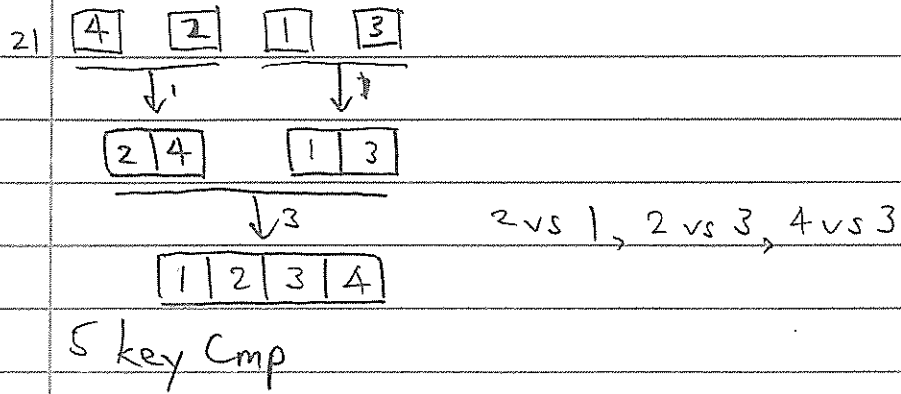 21 4 2 1 3
1 1
2 4 1 3
3 2 vs 1, 2 vs 3, 4 vs 3
1 2 3 4
5 key Cmp